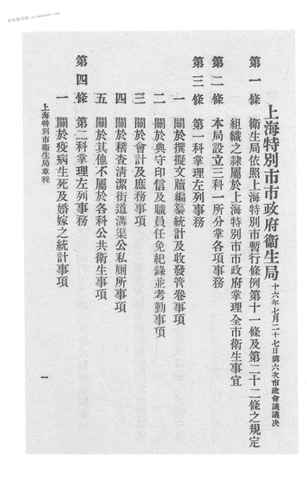 上海特別市市政府衞生局 十六年七月二十七日第六次市政會議議決
第一條 衞生局依照上海特別市暫行條例第十一條及第二十二條之規定
組織之隸屬於上海特別市市政府掌理全市衞生事宜
第二條 本局設立三科一所分掌各項事務
第三條 第一科掌理左列事務
一 關於撰擬文牘編纂統計及收發管卷事項
二 關於典守印信及職員任免紀錄並考勤事項
三 關於會計及庶務事項
四 關於稽查清潔街道溝渠公私厠所事項
五 關於其他不屬於各科公共衞生事項
第四條 第二科掌理左列事務
一 關於疫病生死及婚嫁之統計事項
上海特別市衞生局章程
一